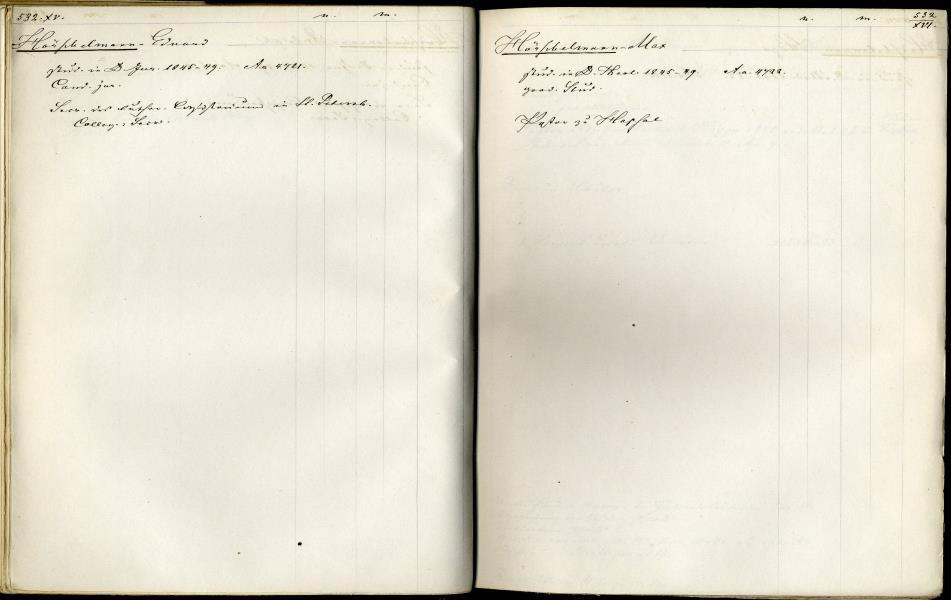 532. XV. n. m.
Hörschelmann - Eduard
stud. in D. Jur. 1845-49. A.a. 4721.
Cand. jur.
Secr. des luther. Consistoriums in St. Petersb.
Colleg. Secr.
n. m. 532
XVI.
Hörschelmann - Max
stud. in D. Theol. 1845-49. A.a. 4722.
grad. Stud.
Pastor zu Hapsal